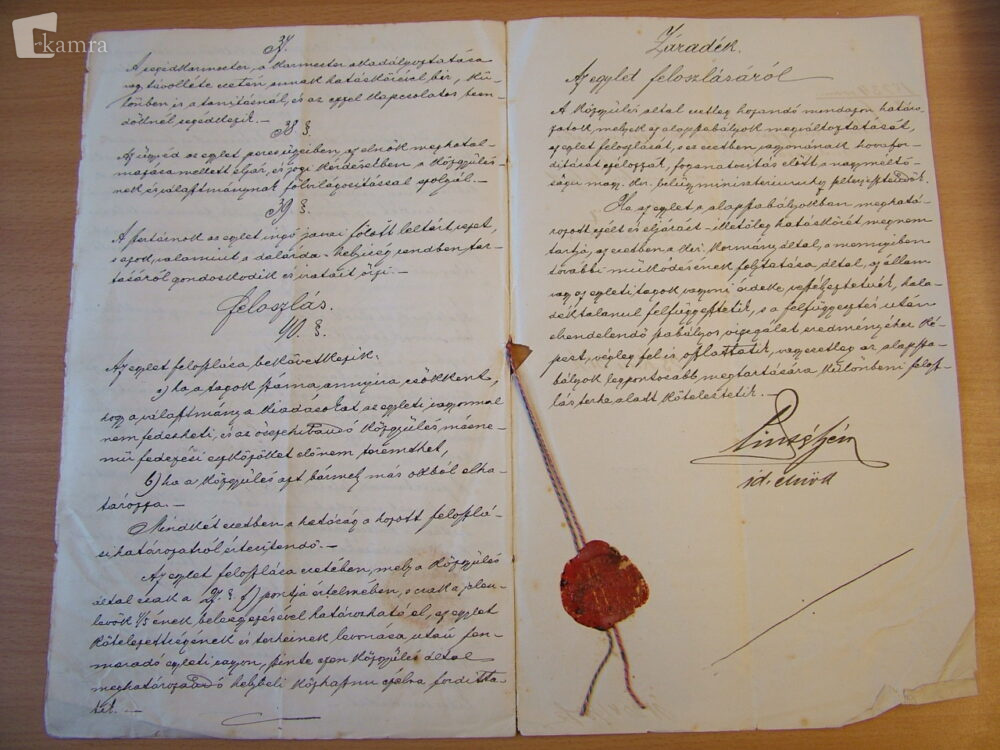 kamra
37.
A segédkarmester, a karmester akadályoztatása
vagy távolléte esetén annak hatáskörével bir, kü-
lönben is a tanitásnál, és az ezzel kapcsolatos teen-
dőknél segédkezik. -
38 §.
Az ügyész az egylet peres ügyeiben, az elnök meghatal-
mazása mellett eljár, és jogi kérdésekben a közgyülés-
nek és választmánynak fölvilágositással szolgál. -
39 §.
A pertárnok az egylet ingó javai fölött leltárt vezet,
s azok, valamint a dalárda-helyiség rendben tar-
tásáról gondoskodik és iratait őrzi. -
Feloszlás.
40. §.
Az egylet feloszlása bekövetkezik:
a) ha a tagok száma annyira csökkent,
hogy a választmány a kiadásokat az egyleti vagyonnal
nem fedezheti, és az összehivandó közgyülés másne-
mü fedezési eszközöket elő nem teremthet,
b) ha a közgyülés azt bármely más okból elha-
tározza. -
Mindkét esetben a hatóság a hozott feloszlá-
si határozatról értesitendő. -
Az egylet feloszlása esetében, mely a közgyülés
által csak a § f) pontja értelmében, s csak a jelen-
levők 4/5 ének beleegyezésével határozható el, az egylet
kötelezettségének és terheinek levonása után fen-
maradó egyleti vagyon, szinte ezen közgyülés által
meghatározandó helybeli közhasznu czélra fordittat-
tik. -
Záradék.
Az egylet feloszlásáról
A közgyülés által esetleg hozandó mindazon határo-
zatok, melyek az alapszabályok megváltoztatását,
az egylet feloszlását, s ez esetben vagyonának hovafor-
ditását czélozzák, foganatositás előtt a nagyméltó-
ságu magy. kir. belügyministeriumhoz felterjesztendők.
Ha az egylet az alapszabályokban meghatá-
rozott czélt és eljárást illetőleg hatáskörét meg nem
tartja, az esetben a kir. kormány által, a mennyiben
további müködésének folytatása által, az állam
vagy az egyleti tagok vagyoni érdeke veszélyeztetnék, hala-
déktalanul felfüggesztetik, s a felfüggesztés után
elrendelendő szabályos vizsgálat eredményéhez ké-
pest, végleg fel is oszlattatik, vagy esetleg az alapsza-
bályok legpontosabb megtartására különbeni felosz-
lás terhe alatt köteleztetik. -
id. elnök